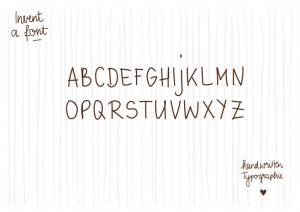 Invent
a font
ABCDEFGHijKLMN
OPQRSTUVWXYZ
handwritten
Typographie